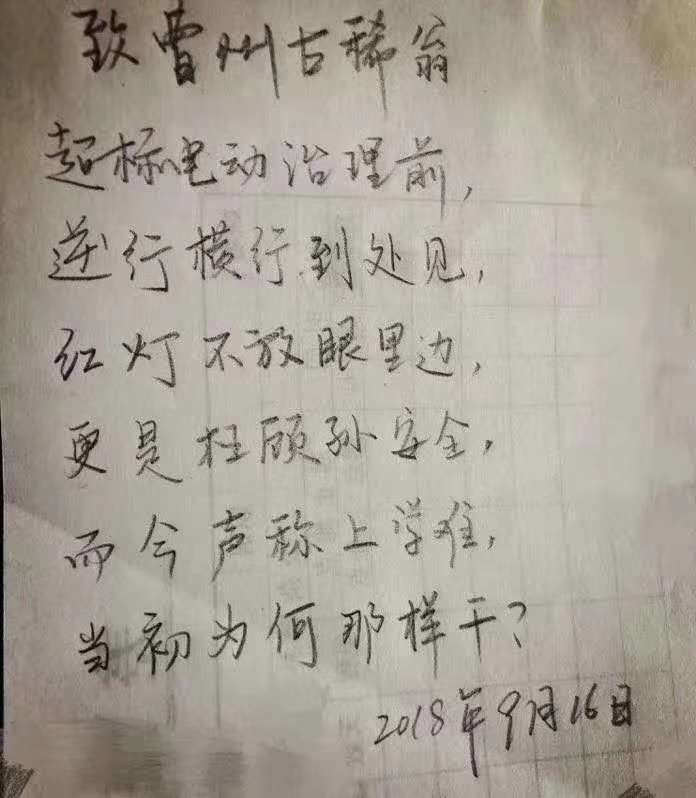 致曹州古稀翁
超标电动治理前,
逆行横行到处见,
红灯不放眼里边,
更是枉顾孙安全,
而今声称上学难,
当初为何那样干?
2018年9月16日